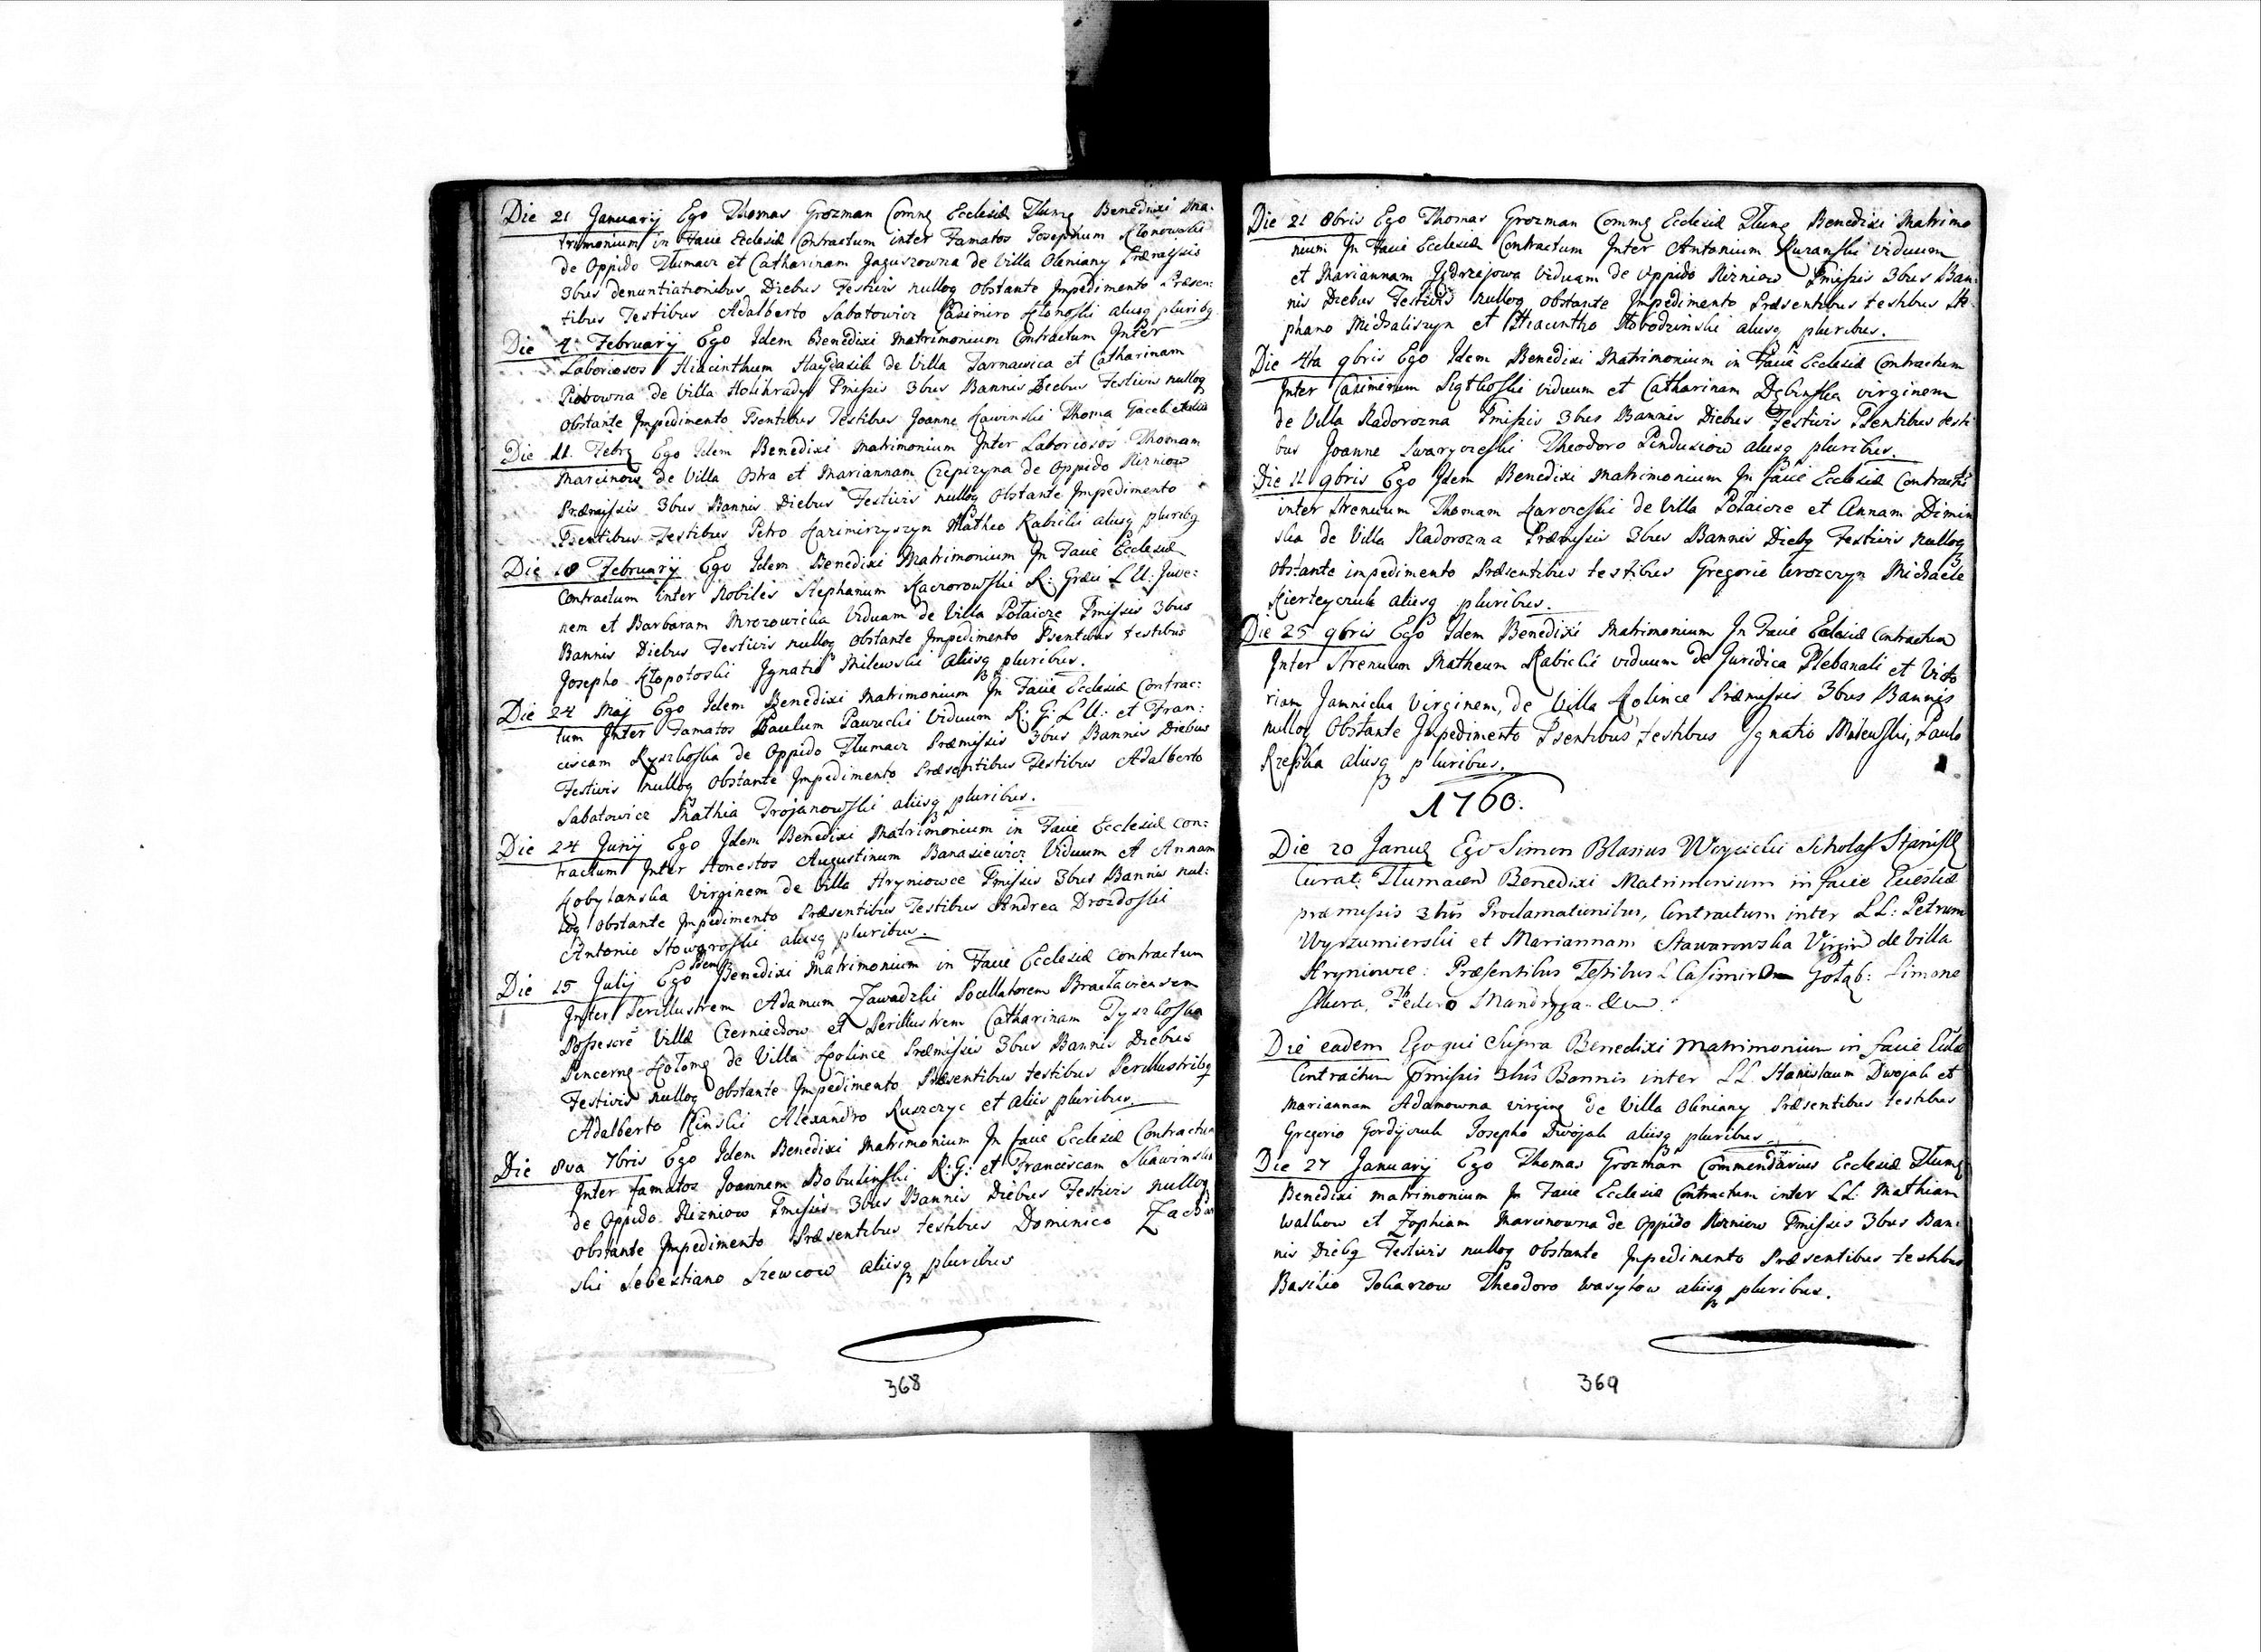 Die 21 Januarij Ego Thomas Grozman Commę Ecclesiæ Tlumę Benedixi Ma-
trimonium in Facie Ecclesiæ Contractum inter Famatos Josephum Klonowski
de Oppido Tlumacz et Catharinam Jaguszowna de Villa Oleniany Præmissis
3bus denuntiationibus Diebus Festivis nulloq obstante Impedimento Præsen:
tibus Testibus Adalberto Sabatowicz Casimiro Klonoski aliisq pluribq
Die 4. February Ego Idem Benedixi Matrimonium Contractum Inter
Laboriosos Hiacinthum Haydasik de Villa Tarnawica et Catharinam
Piotrowna de Villa Holihrady Pmissis 3bus Bannis Diebus Festivis nulloq
obstante Impedimento Psentibus Testibus Joanne Kawinski Thoma Gacek
Die 11. Febrę Ego Idem Benedixi Matrimonium Inter Laboriosos Thomam
Marcinow de Villa Ostra et Mariannam Czepizyna de Oppido Nizniow
Præmissis 3bus Bannis Diebus Festivis nulloq Obstante Impedimento
Psentibus Testibus Petro Kazimirzyszyn Matheo Rabicki aliisq pluribq
Die 18 February Ego Idem Benedixi Matrimonium In Facie Ecclesiæ
Contractum inter Nobiles Stephanum Kaczorowski R: Græci LU: Juve:
nem et Barbaram Mrozowicka Viduam de Villa Potaicze Pmissis 3bus
Bannis Diebus Festivis nulloq obstante Impedimento Psentibus testibus
Josepho Klopotoski Ignatio Milewski aliisq pluribus.
Die 24 Maj Ego Idem Benedixi Matrimonium In Facie Ecclesiæ Contrac:
tum Inter Famatos Paulum Pawucki Viduum R: G: LU: et Fran:
ciscam Ryszkoska de Oppido Tlumacz Præmissis 3bus Bannis Diebus
Festivis Nulloq obstante Impedimento Præsentibus Testibus Adalberto
Sabatowicz Mathia Trojanowski aliisq pluribus.
Die 24 Junij Ego Idem Benedixi Matrimonium in Facie Ecclesiæ con:
tractum Inter Honestos Augustinum Banasiewicz Viduum et Annam
Kobylanska Virginem de Villa Hryniowce Pmissis 3bus Bannis nul:
loq obstante Impedimento Præsentibus Testibus Andrea Drozdoski
Antonio aliisq pluribus.
Die 15 Julij Ego Idem Benedixi Matrimonium in Facie Ecclesiæ contractum
Inter Perillustrem Adamum Zawadzki Pocillatorem Braclaviensem
Possesore Villæ Czerniechow et Perillustrem Catharinam Tyszkoska
Pincernę Kolomę de Villa Kolince Præmissis 3bus Bannis Diebus
Festivis nulloq obstante Impedimento Præsentibus testibus Perillustribq
Adalberto Kinski Alexandro Ruszczyc et aliis pluribus.
Die 8va 7bris Ego Idem Benedixi Matrimonium In facie Ecclesiæ Contractum
Inter famatos Joannem Bobulinski R:G: et Franciscam Skawinska
de Oppido Nizniow Pmissis 3bus Bannis Diebus Festivis nulloq
obstante Impedimento Præsentibus testibus Dominico
ski Sebestiano Szewcow aliisq pluribus
368
Die 21 8bris Ego Thomas Grozman Commę Ecclesiæ Tlumę Benedixi Matrimo
nium In Facie Ecclesiæ Contractum Inter Antonium Kuzanski viduum
et Mariannam Jędrzejowa Viduam de Oppido Nizniow Pmissis 3bus Ban:
nis Diebus Festivis Nulloq obstante Impedimento Præsentibus testibus Ste
phano Michaliszyn et Hiacintho Slobodzinski aliisq pluribus.
Die 4ta 9bris Ego Idem Benedixi Matrimonium in Facie Ecclesiæ Contractum
Inter Casimirum viduum et Catharinam Dębinska virginem
de Villa Nadorozna Pmissis 3bus Bannis Diebus Festivis Psentibus testi
bus Joanne Swaryczeski Theodoro Pindusiow aliisq pluribus.
Die 11 9bris Ego Idem Benedixi Matrimonium In facie Ecclesiæ Contractũ
inter Strenuum Thomam Karczeski de Villa Potaicze et Annam Dimin
ska de Villa Nadorozna Præmissis 3bus Bannis Diebq Festivis nulloq
obstante impedimento Præsentibus testibus Gregorio Michaele
Kierteyczuk aliisq pluribus.
Die 25 9bris Ego Idem Benedixi Matrimonium In Facie Ecclesiæ Contractum
Inter Strenuum Matheum Rabicki viduum de Juridica Plebanali et Victo
riam Jamnicka Virginem, de Villa Kolince Præmissis 3bus Bannis
nulloq Obstante Impedimento Psentibus testibus Ignatio Milewski, Paulo
Rzepka aliisq pluribus.
1760.
Die 20 Januę Ego Simon Blasius Woycicki Scholas Stanisl
Curat: Tlumacen Benedixi Matrimonium in facie Ecclesiæ
præmissis 3bus Proclamationibus, Contractum inter LL: Petrum
Wyrzumierski et Mariannam Stawarowska Virgin de Villa
Hryniowce: Præsentibus Testibus L Casimiro Gołąb: Simone
Skura, Fedoro Mandryga
Die eadem Ego qui Supra Benedixi Matrimonium in facie Eccłæ
Contractum pmissis 3bus Bannis inter LL. Stanislaum Dwojak et
Mariannam Adamowna virginę de Villa Oleniany Præsentibus testibus
Gregorio Gordijczuk Josepho Dwojak aliisq pluribus.
Die 27 January Ego Thomas Grozman Commendarius Ecclesiæ Tlumę
Benedixi matrimonium In Facie Ecclesiæ Contractum inter LL. Mathiam
Walkow et Zophiam Marcinowna de Oppido Nizniow Pmissis 3bus Ban:
nis Diebq Festivis nulloq obstante Impedimento Præsentibus testibus
Basilio Tokarzow Theodoro Wasylow aliisq pluribus.
369